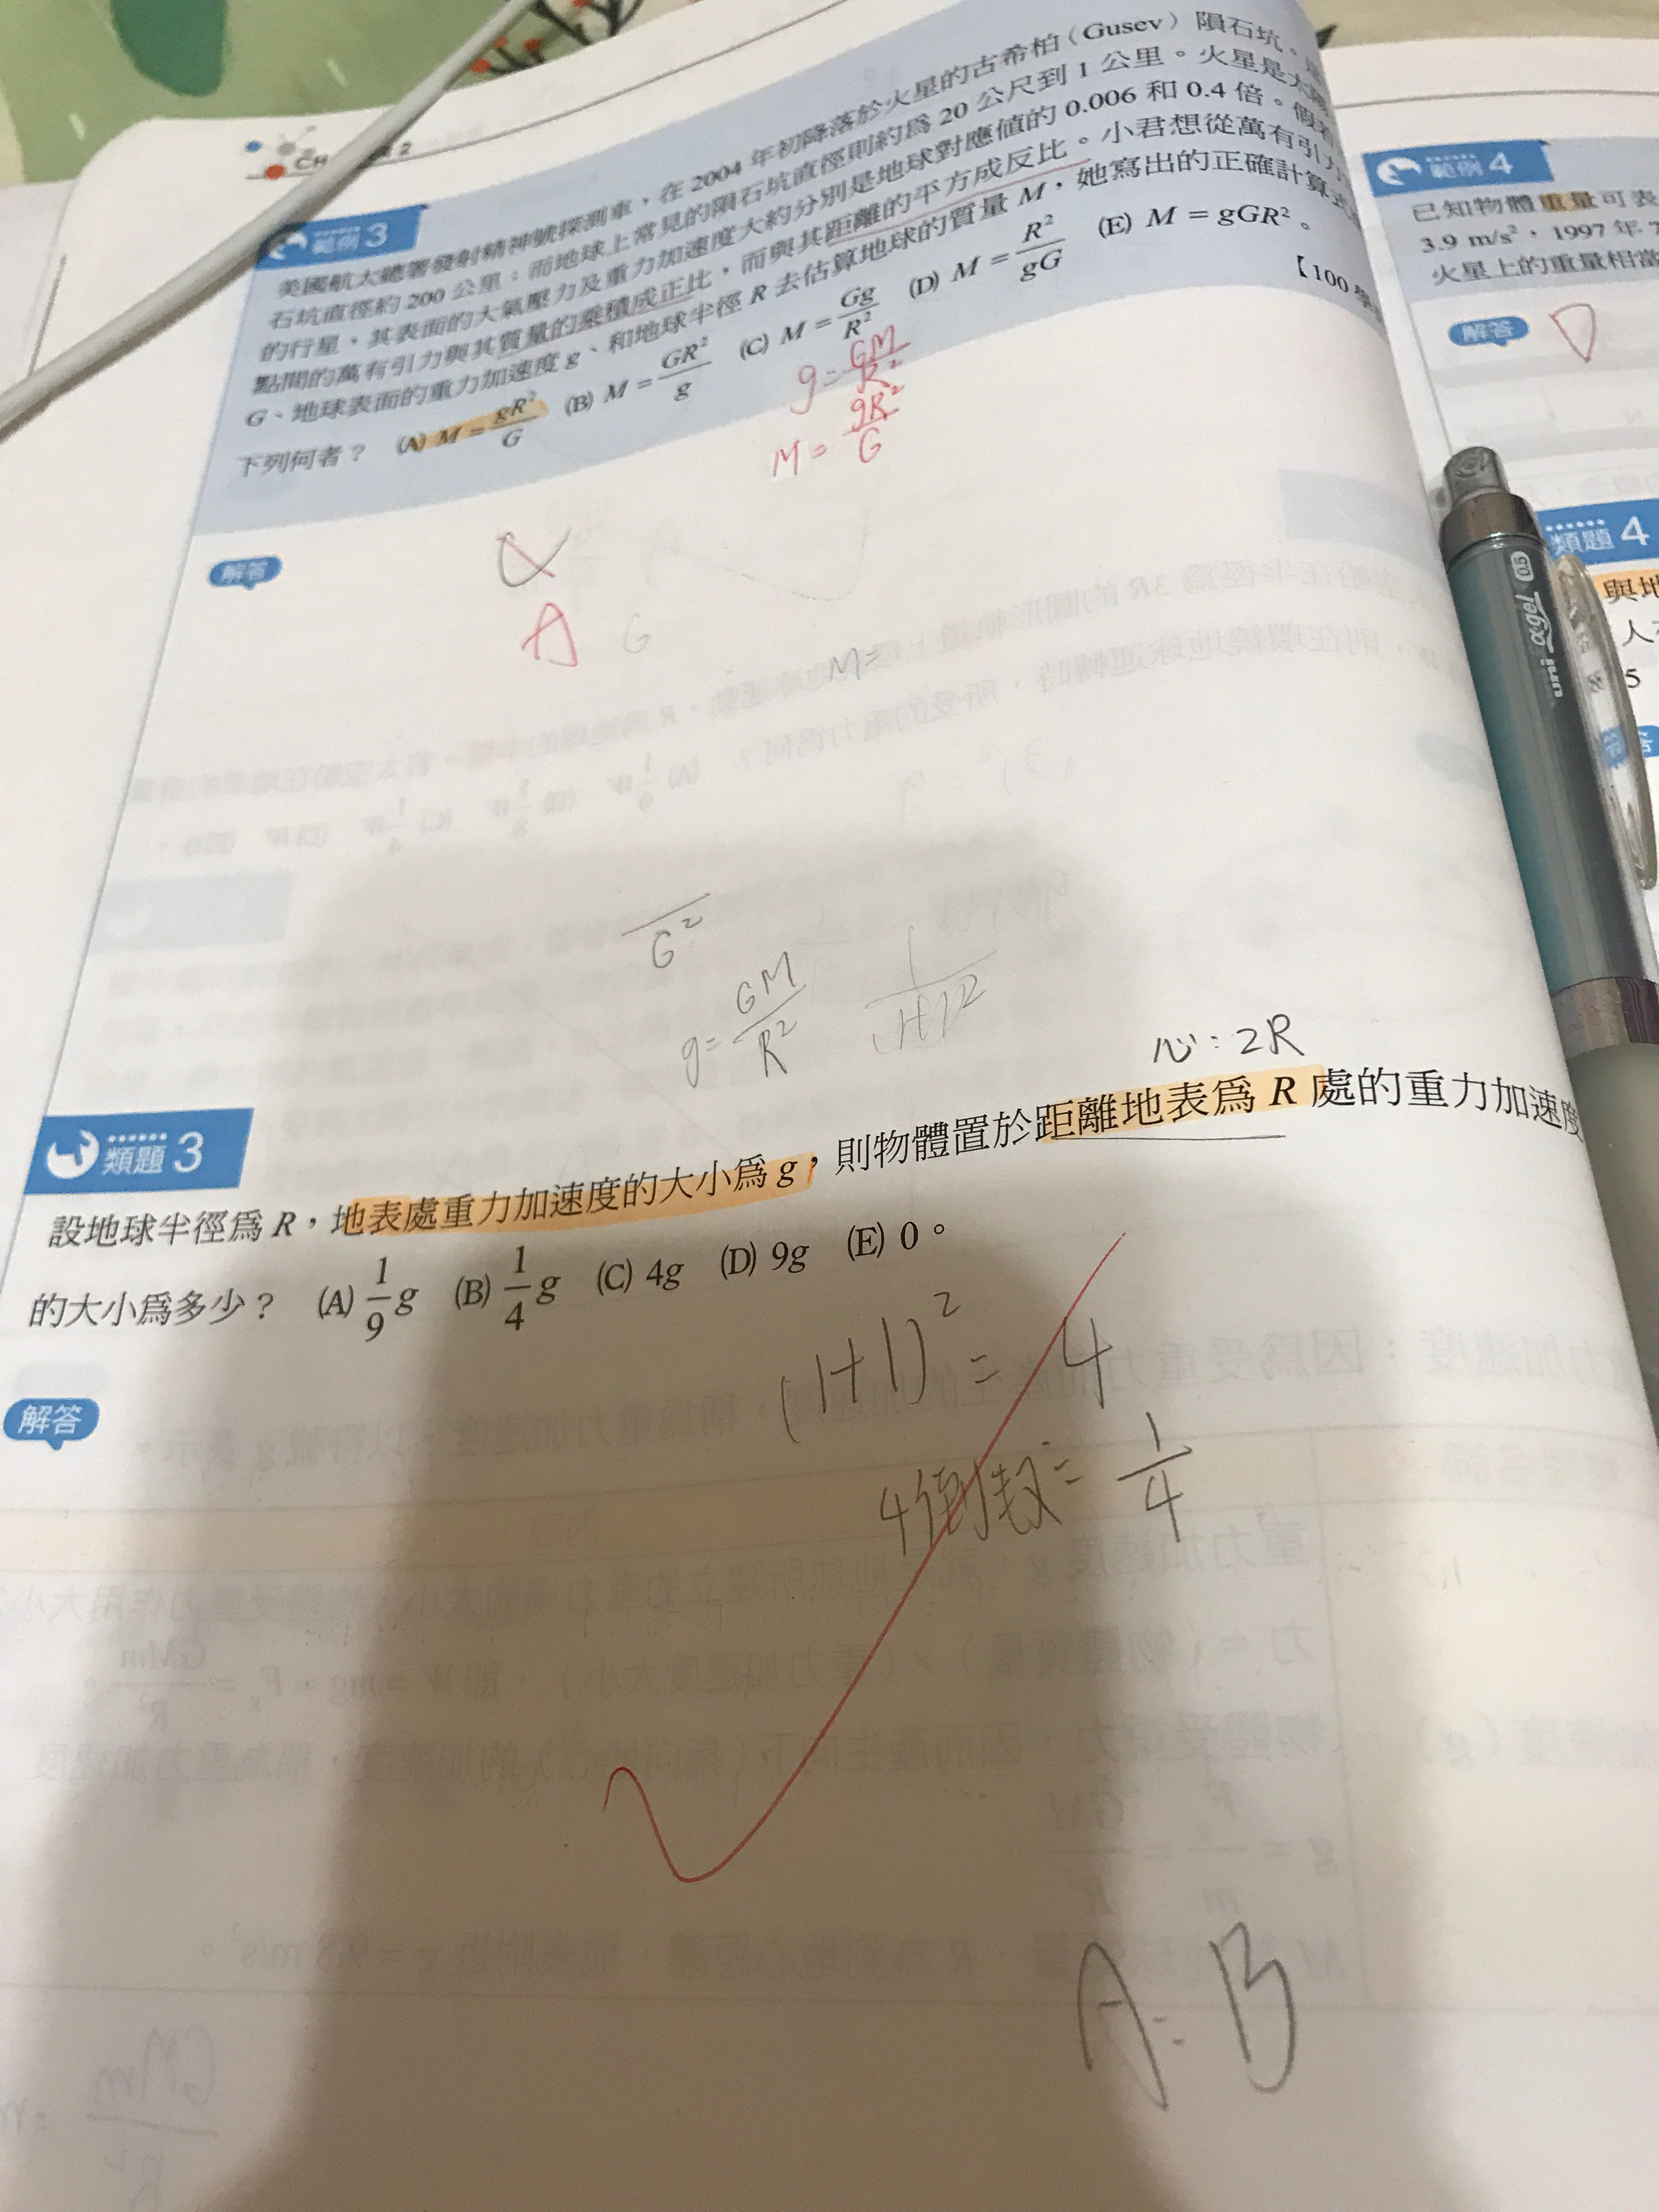 範例 3
美國航太總署發射精神號探測車，在 2004 年初降落於火星的古希柏（Gusev）隕石坑。
石坑直徑約 200 公里；而地球上常見的隕石坑直徑則約為 20 公尺到 1 公里。火星是太
的行星，其表面的大氣壓力及重力加速度大約分別是地球對應值的 0.006 和 0.4 倍。假
點間的萬有引力與其質量的乘積成正比，而與其距離的平方成反比。小君想從萬有引力
G、地球表面的重力加速度 g、和地球半徑 R 去估算地球的質量 M，她寫出的正確計算式
下列何者？ (A) M = gR²/G (B) M = GR²/g (C) M = Gg/R² (D) M = R²/gG (E) M = gGR²。
【100
g = GM/R²
M = gR²/G
解答
A G
M =
G²
g = GM/R²
心：2R
類題 3
設地球半徑為 R，地表處重力加速度的大小為 g，則物體置於距離地表為 R 處的重力加速度
的大小為多少？ (A) 1/9 g (B) 1/4 g (C) 4g (D) 9g (E) 0。
解答
(1+1)² = 4
4倒數 = 1/4
A: B
範例 4
已知物體重量可表
3.9 m/s²，1997 年 7
火星上的重量相當
解答
D
類題 4
與地
人
5
uni αgel 0.5